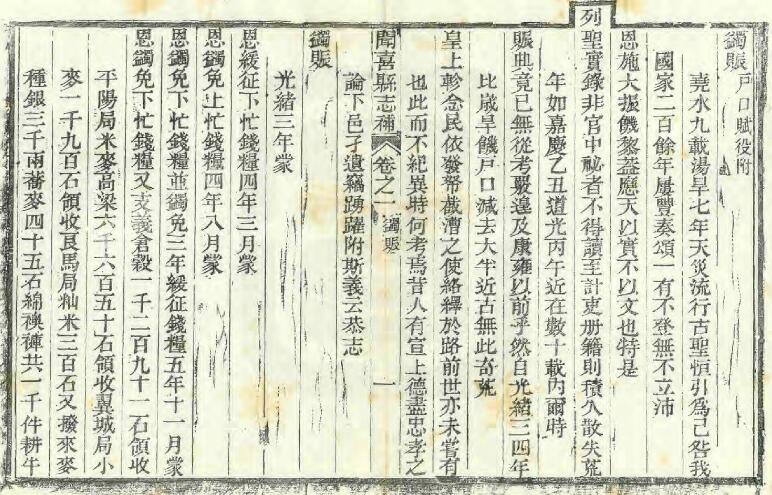 蠲賑戶口賦役附
堯水九載湯旱七年天災流行古聖恒引為己咎我
國家二百餘年屢豐奏頌一有不登無不立沛
恩施大振饑黎蓋應天以實不以文也特是
列聖實錄非官中祕者不得讀至計吏册籍則積久散失荒
年如嘉慶乙丑道光丙午近在數十載內爾時
賑典竟已無從考覈遑及康雍以前乎然自光緒三四年
比歲旱饑戶口減去大半近古無此奇荒
皇上軫念民依發帑截漕之使絡繹於路前世亦未嘗有
也此而不紀異時何考焉昔人有宣上德盡忠孝之
聞喜縣志補 卷之一 蠲賑 一
論下邑孑遺竊踴躍附斯義云恭志
蠲賑
光緒三年蒙
恩緩征下忙錢糧四年三月蒙
恩蠲免上忙錢糧四年八月蒙
恩蠲免下忙錢糧並蠲免三年緩征錢糧五年十一月蒙
恩蠲免下忙錢糧又支義倉穀一千二百九十一石領收
平陽局米麥高梁六千六百五十石領收翼城局小
麥一千九百石領收艮馬局籼米三百石又撥來麥
種銀三千兩蕎麥四十五石綿襖褲共一千件耕牛